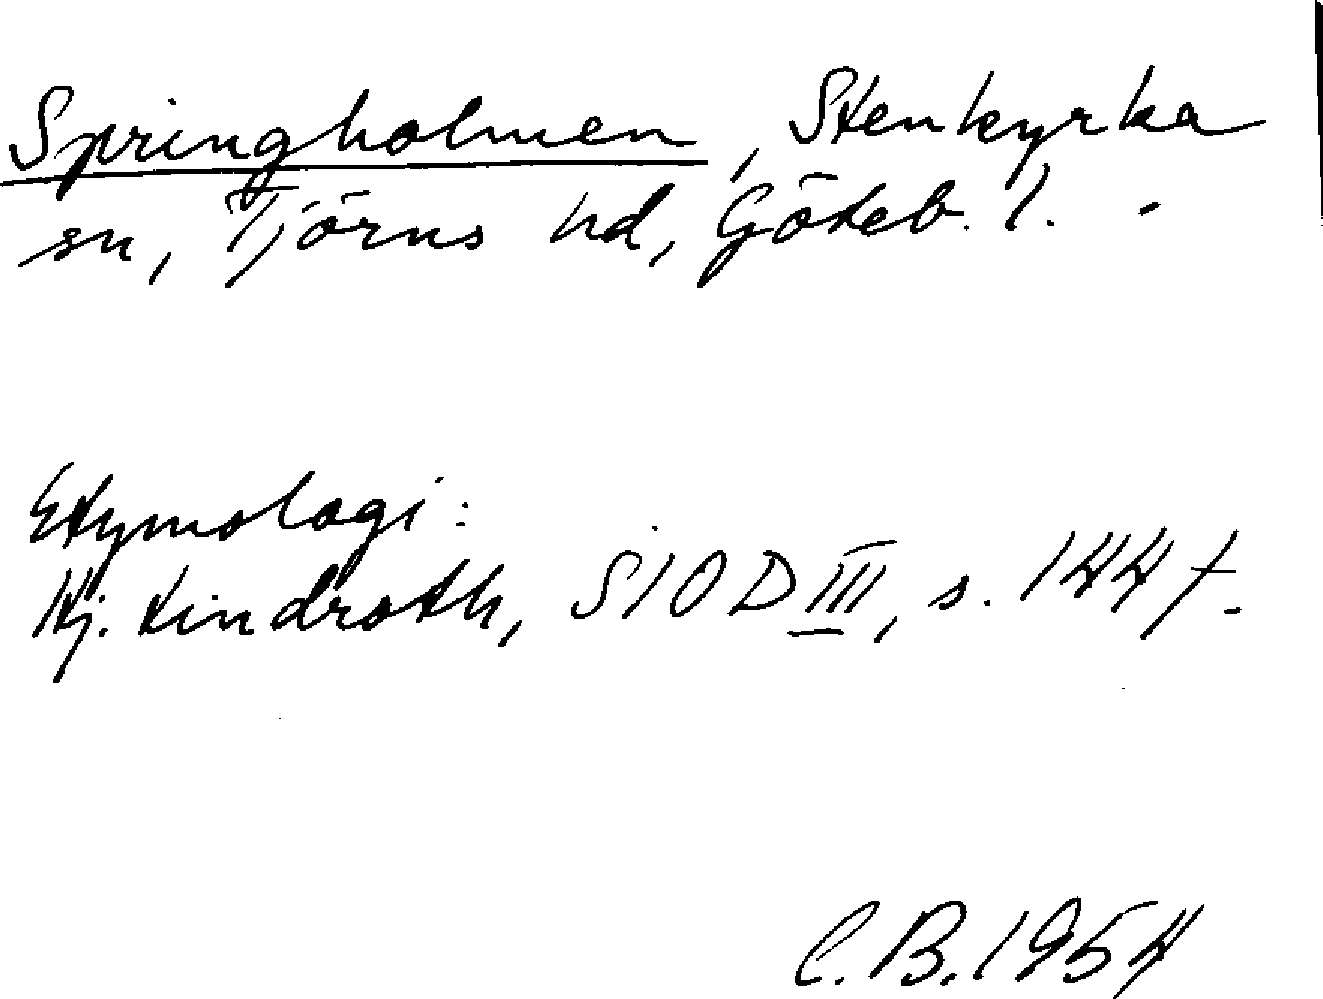 Springholmen, Stenkyrka
sn, Tjörns hd, Göteb. l. -
Etymologi:
Hj. Lindroth, SIOD III, s. 144 f.
C.B. 1954